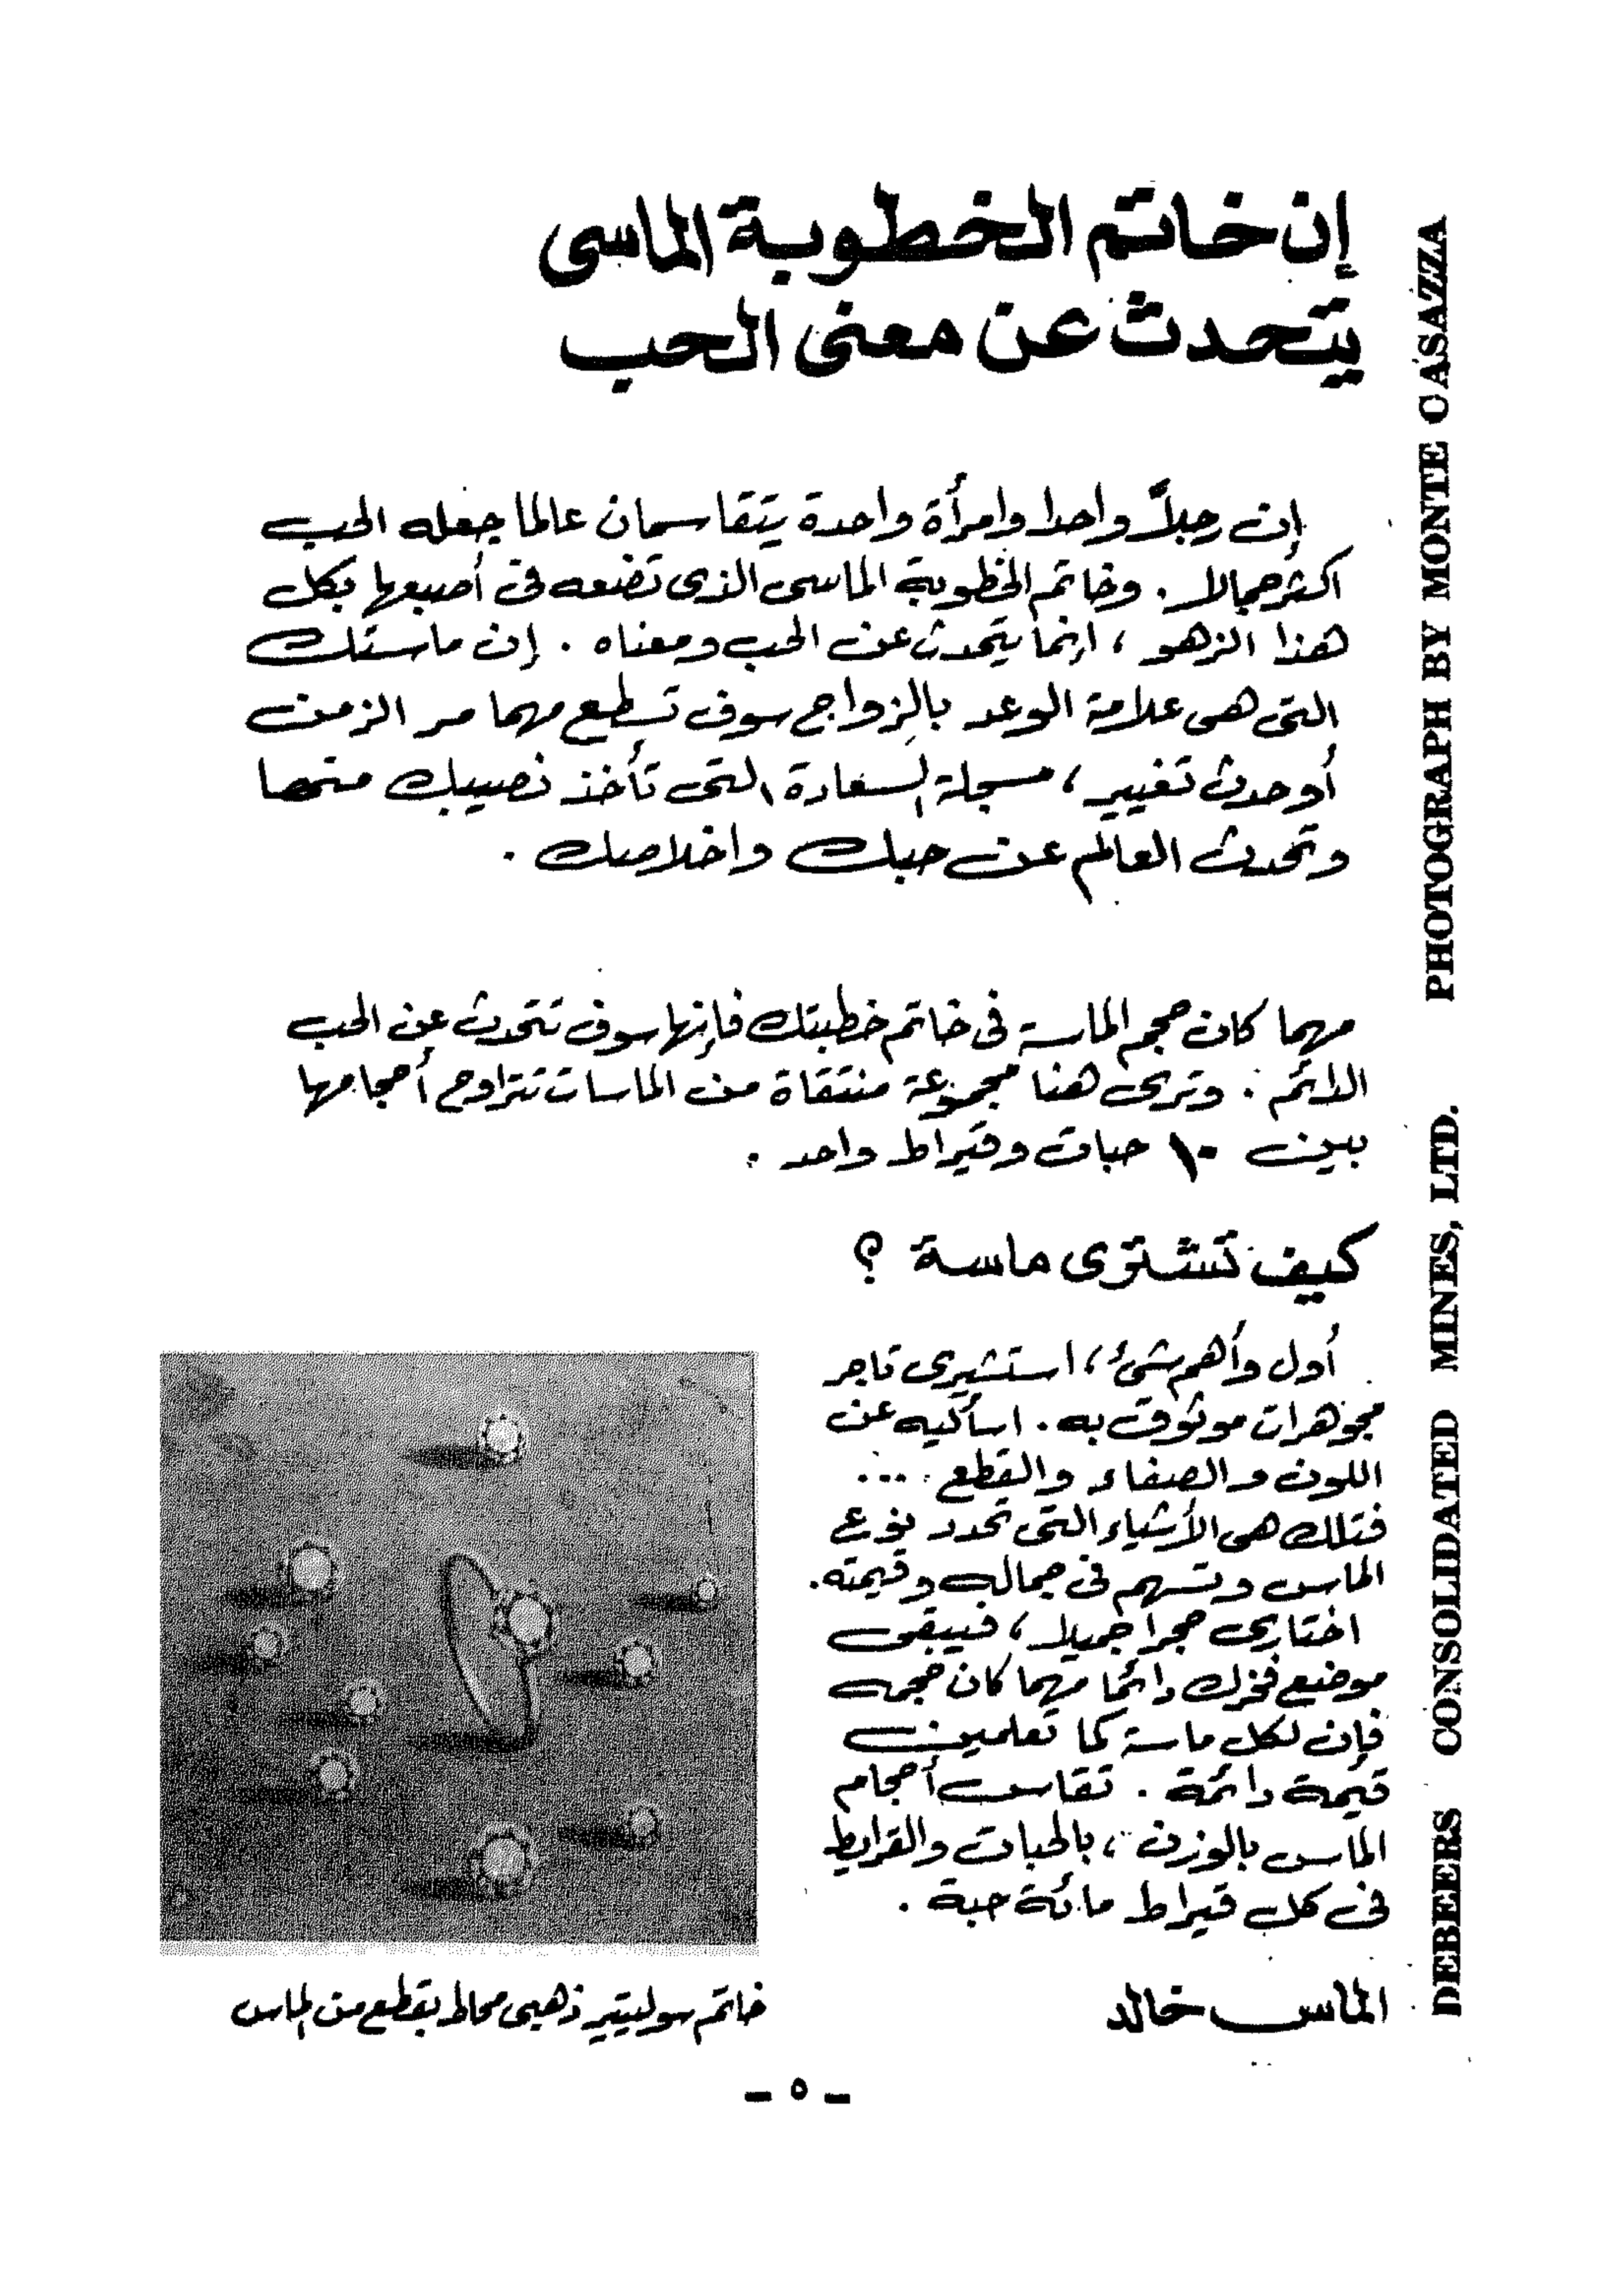 إن خاتم الخطوبة الماسى
يتحدث عن معنى الحب
إن رجلاً واحدا وامرأة واحدة يتقاسمان عالما جعله الحب
اكثر جمالا . وخاتم الخطوبة الماسى الذى تضعه فى أصبعها بكل
هذا الزهو ، انما يتحدث عن الحب ومعناه . إن ماستك
التى هى علامة الوعد بالزواج سوف تسطع مهما مر الزمن
أو حدث تغيير ، مسجلة السعادة التى تأخذ نصيبك منها
وتحدث العالم عن حبك واخلاصك .
مهما كان حجم الماسة فى خاتم خطبتك فإنها سوف تتحدث عن الحب
الدائم . وترى هنا مجموعة منتقاة من الماسات تتراوح أحجامها
بين ١٠ حبات وقيراط واحد .
كيف تشترى ماسة ؟
أول وأهم شئ ، استشيرى تاجر
مجوهرات موثوق به . اسأليه عن
اللون والصفاء والقطع ...
فتلك هى الأشياء التى تحدد نوع
الماس وتسهم فى جماله وقيمته .
اختارى حجرا جميلا ، فيبقى
موضع فخرك دائما مهما كان حجمه
فإن لكل ماسة كما تعلمين
قيمة دائمة . تقاس أحجام
الماس بالوزن ، بالحبات والقراريط
فى كل قيراط مائة حبة .
الماس خالد
خاتم سوليتير ذهبى محاط بقطع من الماس
PHOTOGRAPH BY MONTE CASAZZA
DEBEERS CONSOLIDATED MINES, LTD.
- ٥ -